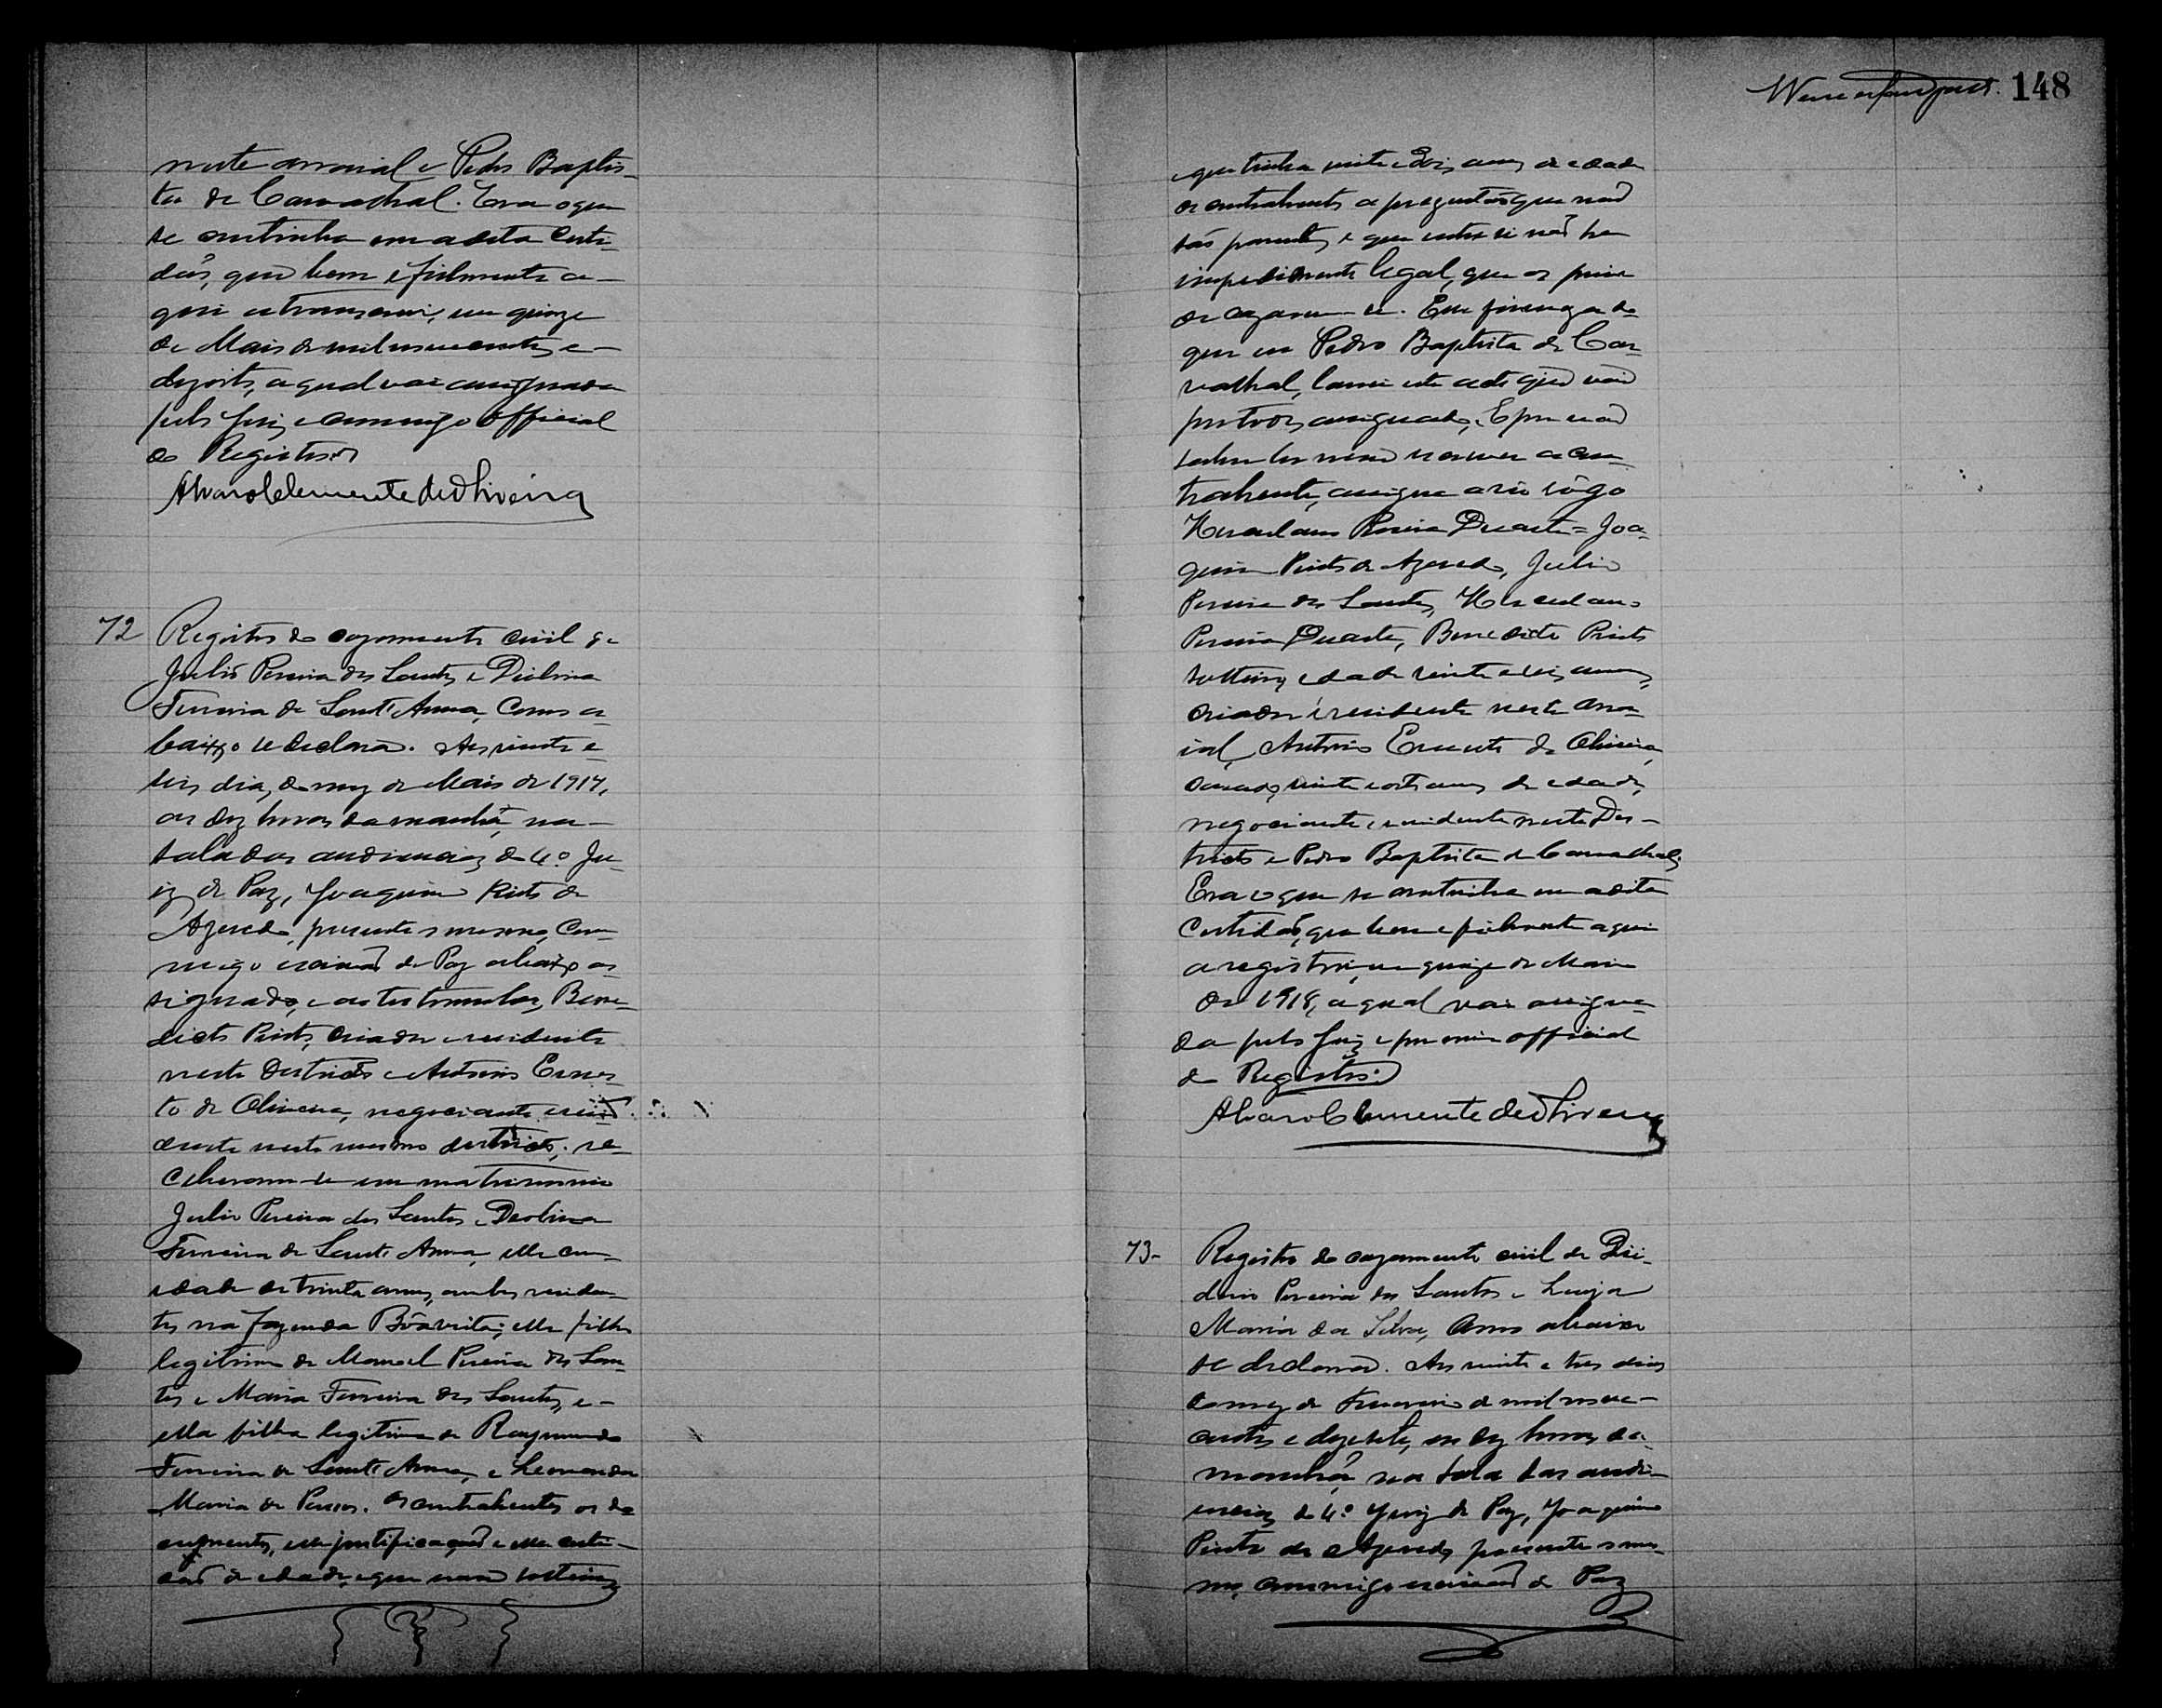 neste arraial e Pedro Baptis-
ta de Carvalhal. Era o que
se continha em a dita Certi-
dão, que bem e fielmente a-
qui a transcrevi, em quinze
de Maio de mil novecentos e-
dezoito, a qual vae assignada
pelo Juiz e commigo official
do Registro
Alvaro Clemente de Oliveira
72 Registro do cazamento civil de
Julio Pereira dos Santos e Diolina
Ferreira de Sant'Anna, Como a-
baixo se declara. Aos vinte e
seis dias, do mez de Maio de 1917,
as dez horas da manhã, na-
sala das audiencias do 4º Ju-
iz de Paz, Joaquim Pinto de
Azevedo, presente o mesmo, Com-
migo escrivão de Paz abaixo as-
signado, e as testemunhas, Bene-
dicto Pinto, criador e residente
neste districto e Antonio Ernes-
to de Oliveira, negociante e resi-
dente neste mesmo districto; re-
ceberam-se em matrimonio
Julio Pereira dos Santos e Deolina
Ferreira de Sant'Anna, elle com
idade de trinta annos, ambos residen-
tes na fazenda Bôavista; elle filho
legitimo de Manoel Pereira dos San-
tos e Maria Ferreira dos Santos, e-
ella filha legitima de Raymundo
Ferreira de Sant'Anna, e Leonarda
Maria de Os contrahentes os do
cumentos, elle justificação e ella certi-
dão de edade, e que eram solteiros
148
e que tinha vinte e dois annos de edade
os contrahentes a perguntas que não
são parentes e que entre si não ha
impedimento legal, que os prive
de cazarem-se. Em firmeza do
que eu Pedro Baptista de Car-
valhal, lavrei este acto que vae
por todos assignado, E por não
saber ler nem escrever a con-
trahente, assigna a seu rôgo
Herculano Pereira Duarte = Joa-
quim Pinto de Azevedo, Julio
Pereira dos Santos, Herculano
Pereira Duarte, Benedicto Pinto
solteiro, edade vinte e seis annos,
criador e residente neste arra-
ial, Antonio Ernesto de Oliveira,
casado, vinte e oito annos de edade,
negociante, e residente neste Dis-
tricto e Pedro Baptista de Carvalhal.
Era o que se continha em a dita
Certidão, que bem e fielmente aqui
a registrei, em quinze de Maio
de 1918, a qual vae assigna-
da pelo Juiz e por mim official
do Registro.
Alvaro Clemente de Oliveira
73- Registro do cazamento civil de Desi-
derio Pereira dos Santos e Luiza
Maria da Silva, Como abaixo
se declara. Aos vinte e tres dias
do mez de Fevereiro de mil nove-
centos e dezesete, as dez horas da-
manhã, na sala das audi-
encias do 4º Juiz de Paz, Joaquim
Pinto de Azevedo, presente o mes-
mo, commigo escrivão de Paz